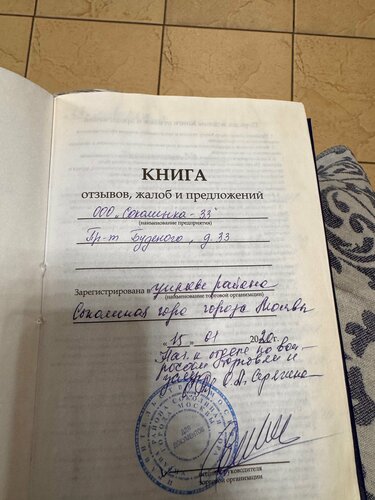 КНИГА
отзывов, жалоб и предложений
ООО "Соколинка-33"
(наименование предприятия)
Пр-т Буденого, д. 33
Зарегистрирована в управе района
(наименование торговой организации)
Соколиная гора города Москвы
"15" 01 2020 г.
Нач-к отдела по воп-
росам торговли и
услуг О.А. Серегина
ДЛЯ
ДОКУМЕНТОВ
руководителя
торговой организации